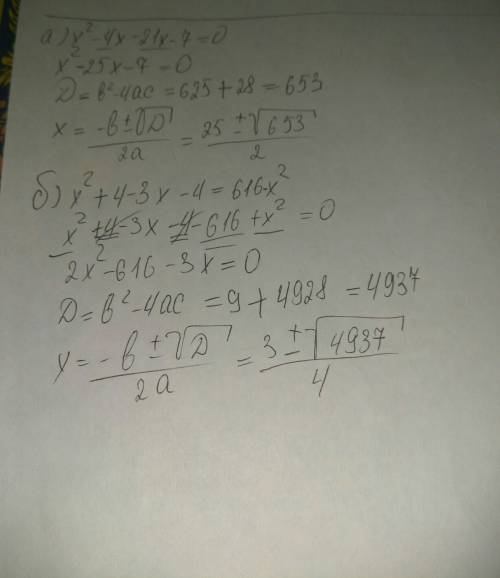 а) x²-4x-21x-7=0
x²-25x-7=0
D=b²-4ac=625+28=653
x = (-b±√D)/2a = (25±√653)/2
б) x²+4-3x-4=616-x²
x²+4-3x-4-616+x²=0
2x²-616-3x=0
D=b²-4ac=9+4928=4937
x = (-b±√D)/2a = (3±√4937)/4